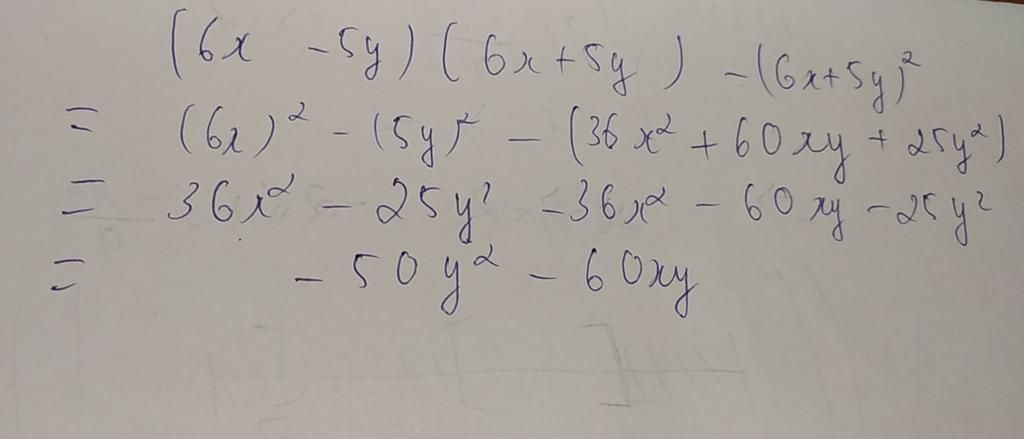 (6x - 5y) (6x + 5y) - (6x + 5y)²
= (6x)² - (5y)² - (36x² + 60xy + 25y²)
= 36x² - 25y² - 36x² - 60xy - 25y²
= - 50y² - 60xy